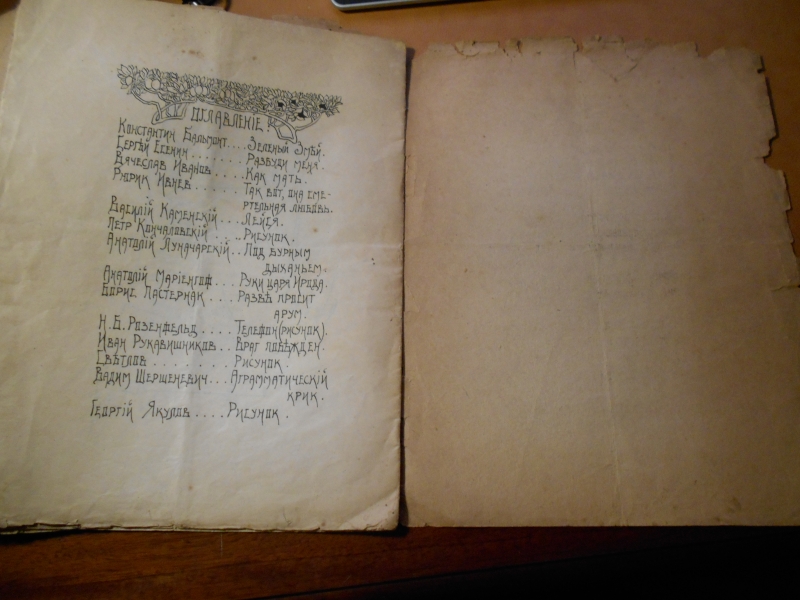 ОГЛАВЛЕНІЕ:
Константин Бальмонт.... Зеленый Змѣй.
Сергѣй Есенин....... Разбуди меня.
Вячеслав Иванов.... Как мать.
Рюрик Ивнев...... Так вот, она сме-
ртельная любовь.
Василій Каменскій... Лейся.
Петр Кончаловскій.... Рисунок.
Анатолій Луначарскій.. Под бурным
дыханьем.
Анатолій Маріенгоф... Руки царя Ирода.
Борис Пастернак.... Развѣ просит
арум.
Н.Б. Розенфельд.... Телефон (рисунок).
Иван Рукавишников.. Враг побѣжден.
Свѣтлов........ Рисунок.
Вадим Шершеневич... Аграмматическій
крик.
Георгій Якулов.... Рисунок.